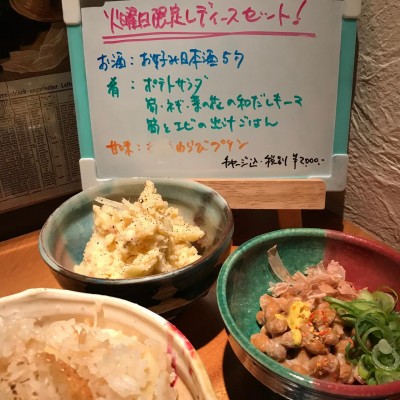 火曜日限定レディースセット!
お酒:お好み日本酒5勺
肴:ポテトサラダ
筍・ネギ・菜の花の和だしキーマ
筍とエビの出汁ごはん
甘味: わらびプリン
チャージ込・税別 ¥2,000.-